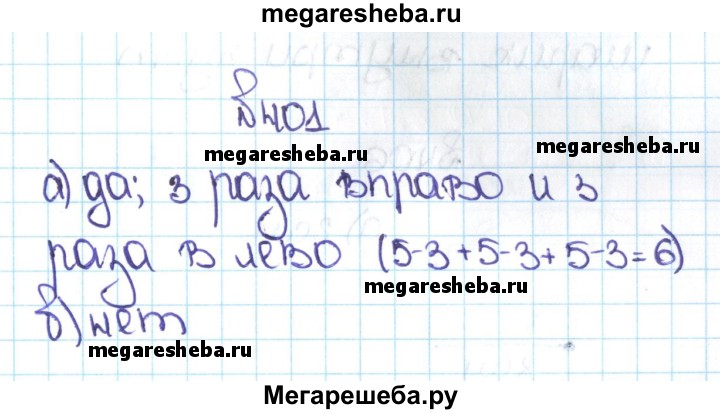 megaresheba.ru
№401
megaresheba.ru
megaresheba.ru
а) да; 3 раза вправо и 3
раза в лево (5-3+5-3+5-3=6)
megaresheba.ru
б) нет
megaresheba.ru
Мегарешеба.ру